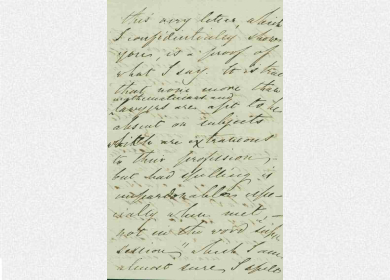 this very letter, which
I confidentially show
you, is a proof of
what I say. It is true
that none more than
mathematicians and
lawyers are apt to be
absent on subjects
which are extraneous
to their profession,
but bad spelling is
unpardonable, espe-
cially when met,
not in the word
session," which I am
almost sure I spelt